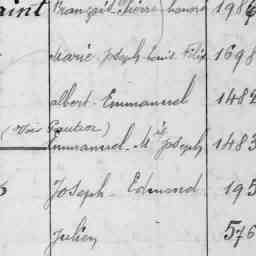 aint François Pierre Honoré 198
Marie Joseph Louis Félix 1698
Albert-Emmanuel 1482
(Voir Gautier)
Emmanuel-Mie Joseph 1483
Joseph-Edmond 195
Julien 576